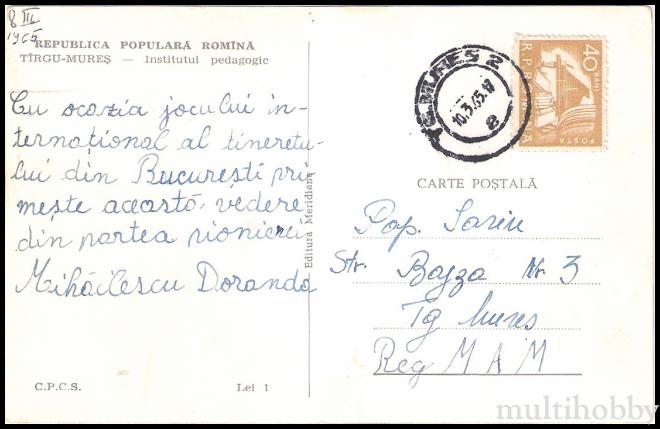 8 III
1965
REPUBLICA POPULARĂ ROMÎNĂ
TÎRGU-MUREȘ — Institutul pedagogic
Cu ocazia jocului in-
ternațional al tineretu-
lui din București pri
mește această vedere
din partea pionierii
Mihăilescu Doranda
C.P.C.S.
Lei 1
Editura Meridiane
TG. MUREȘ 2
10.3.65.19
40 BANI
R.P.R.
POSTA
CARTE POȘTALĂ
Pap. Sorin
Str. Bajza Nr. 3
Tg Mureș
Reg M A M
multihobby